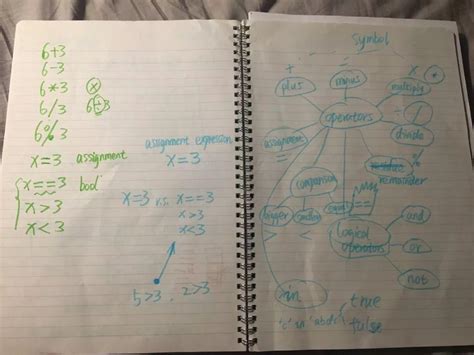 6+3
6-3
6*3 x
6/3 6÷3
6%3
x=3 assignment
x==3 bool
x>3
x<3
assignment expression
x=3
x=3 v.s. x==3
x>3
x<3
5>3, 2>3
symbol
+ - × *
plus minus multiple
operators
÷ /
divide
assignment
=
%
remainder
comparison
bigger smaller equals
> < ==
logical
operators
and
or
not
in
true
false